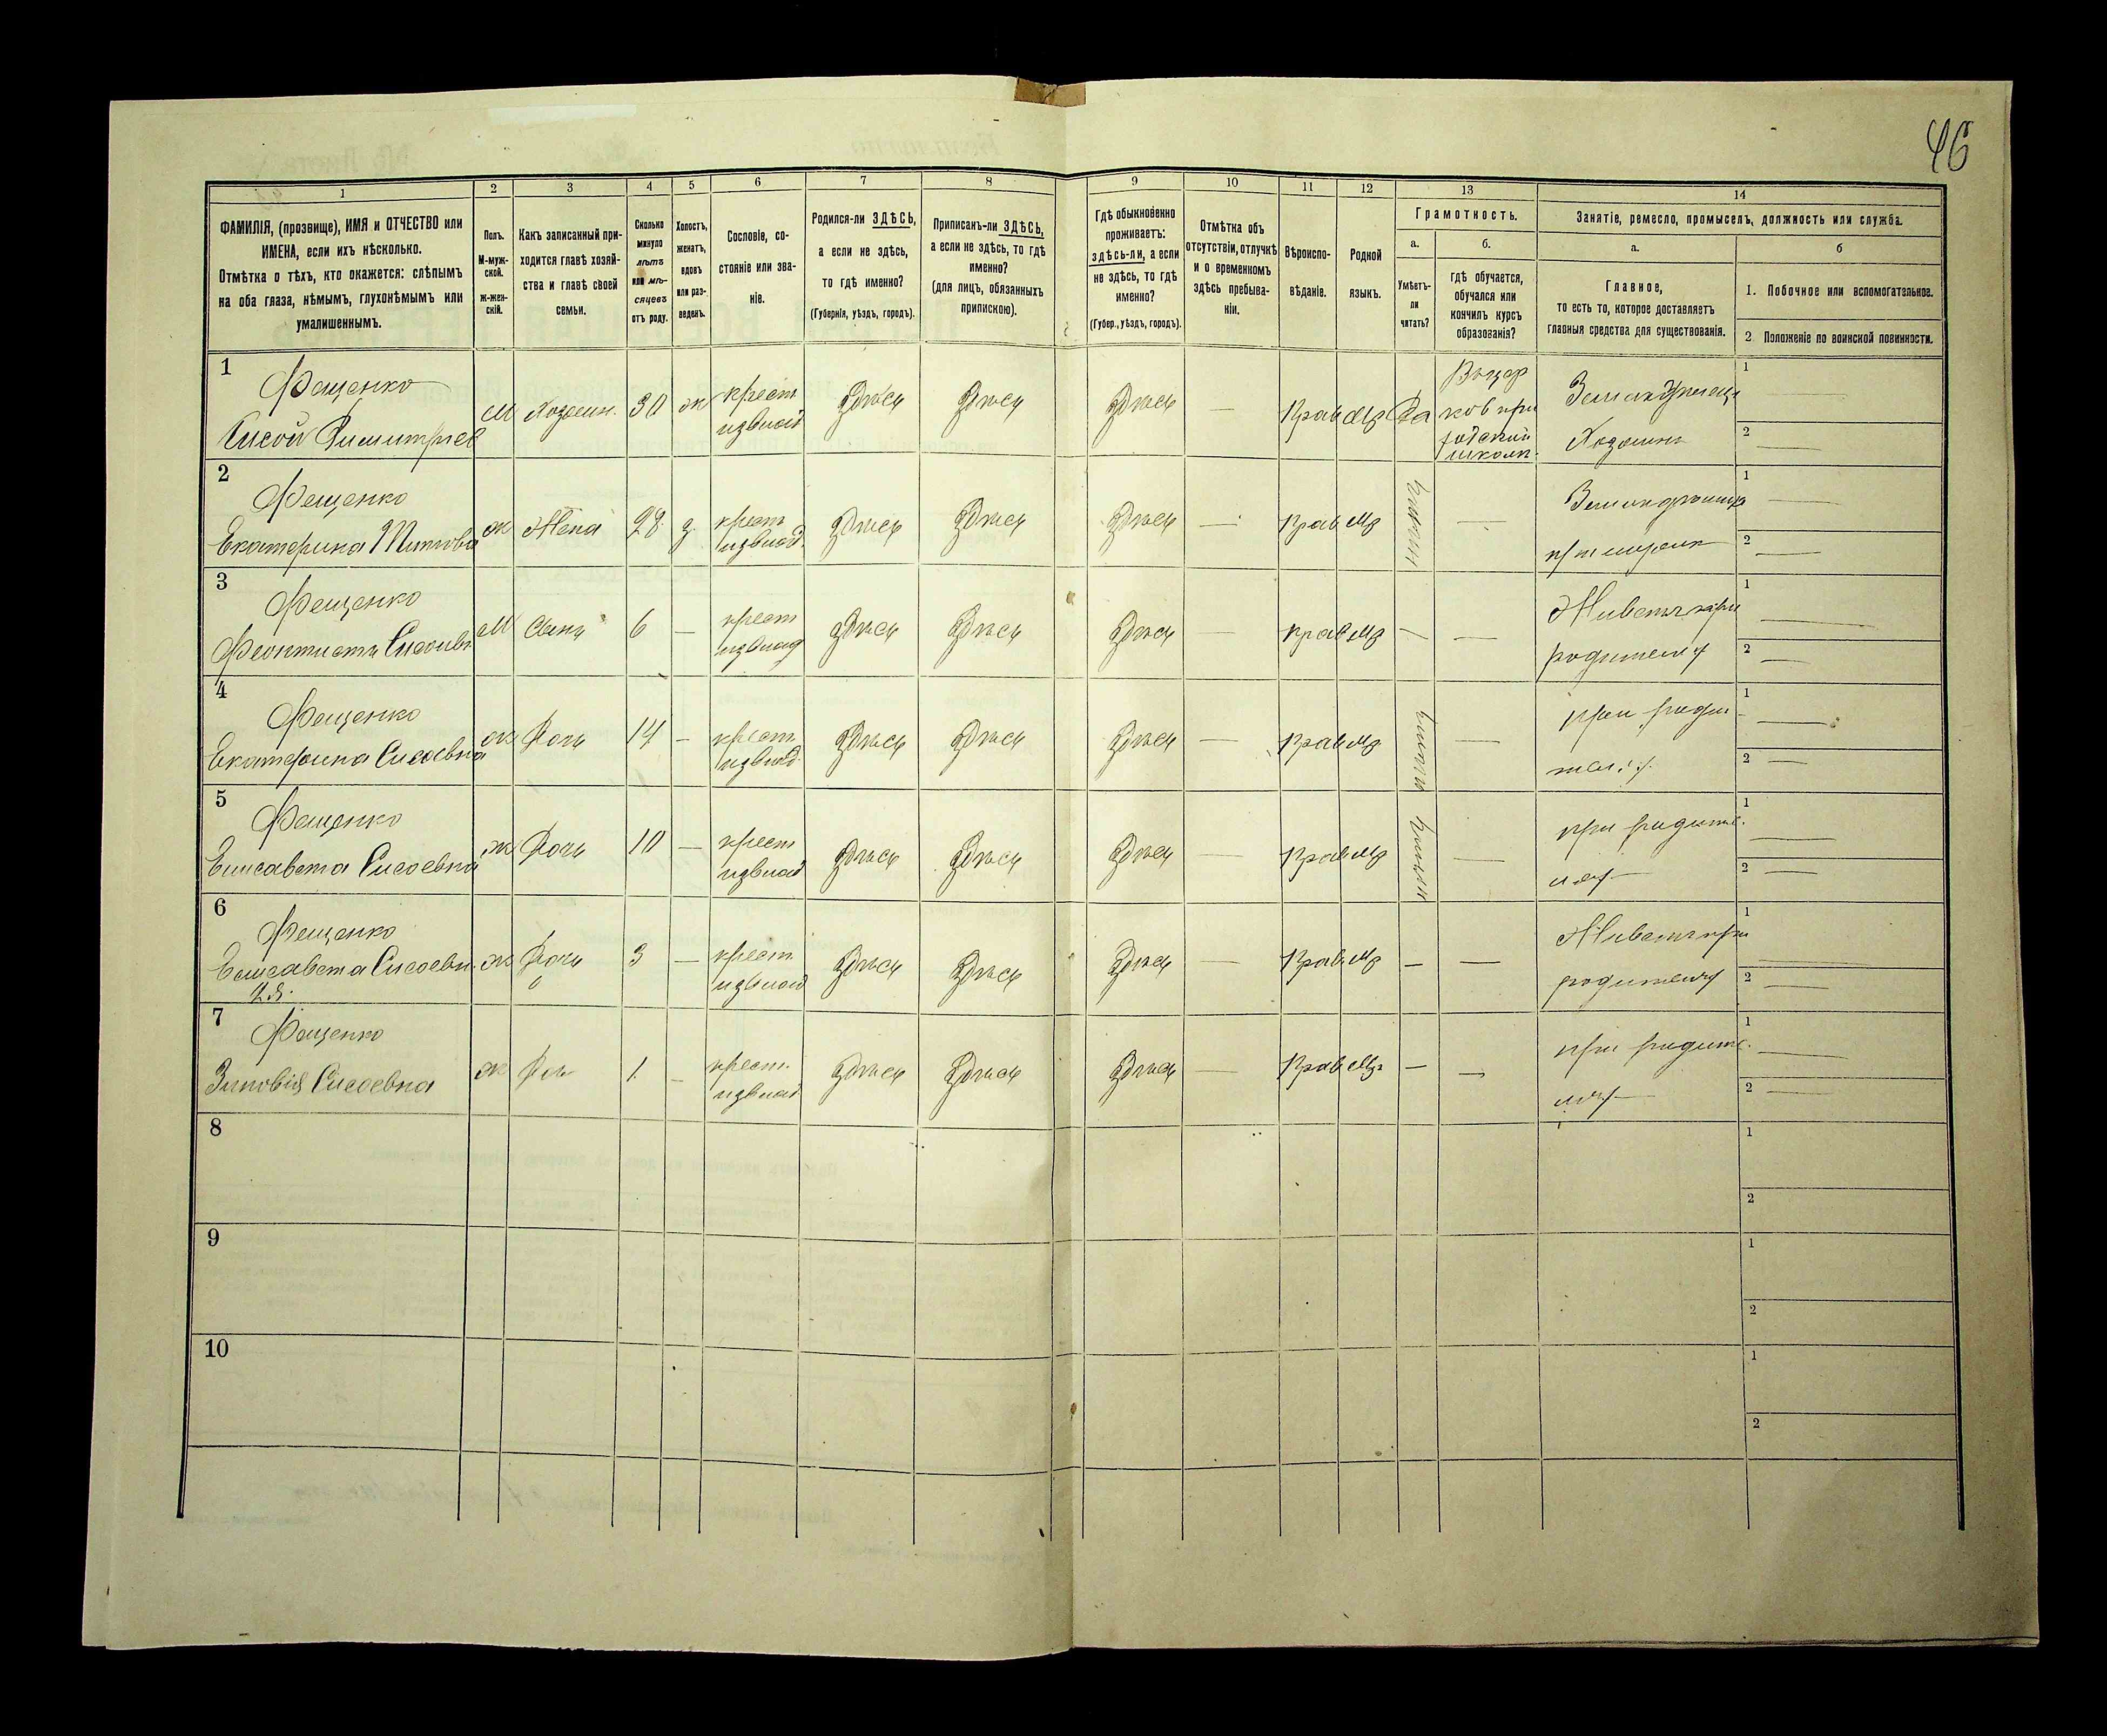 46
1
2
3
4
5
6
7
8
9
10
11
12
13
14
ФАМИЛІЯ, (прозвище), ИМЯ и ОТЧЕСТВО или
ИМЕНА, если ихъ нѣсколько.
Отмѣтка о тѣхъ, кто окажется: слѣпымъ
на оба глаза, нѣмымъ, глухонѣмымъ или
умалишеннымъ.
Полъ.
М-муж-
ской.
ж-жен-
скій.
Какъ записанный при-
ходится главѣ хозяй-
ства и главѣ своей
семьи.
Сколько
минуло
лѣтъ
или мѣ-
сяцевъ
отъ роду.
Холостъ,
женатъ,
вдовъ
или раз-
веденъ.
Сословіе, со-
стояніе или зва-
ніе.
Родился-ли ЗДѢСЬ,
а если не здѣсь,
то гдѣ именно?
(Губернія, уѣздъ, городъ).
Приписанъ-ли ЗДѢСЬ,
а если не здѣсь, то гдѣ
именно?
(для лицъ, обязанныхъ
припискою).
Гдѣ обыкновенно
проживаетъ:
здѣсь-ли, а если
не здѣсь, то гдѣ
именно?
(Губер., уѣздъ, городъ).
Отмѣтка объ
отсутствіи, отлучкѣ
и о временномъ
здѣсь пребыва-
ніи.
Вѣроиспо-
вѣданіе.
Родной
языкъ.
Грамотность.
а.
Умѣетъ-
ли
читать?
б.
гдѣ обучается,
обучался или
кончилъ курсъ
образованія?
Занятіе, ремесло, промыселъ, должность или служба.
а.
Главное,
то есть то, которое доставляетъ
главныя средства для существованія.
б
1. Побочное или вспомогательное.
2 Положеніе по воинской повинности.
1
Фещенко
Сисой Димитріев
М
Хозяин.
30
ж
крест
из влад
Здѣсь
Здѣсь
Здѣсь
—
Прав
Мр
Да
ков при
школѣ
Хозяинъ
1 —
2 —
2
Фещенко
Екатерина Титова
ж
Жена
28
з.
крест
из влад.
Здѣсь
Здѣсь
Здѣсь
—
Прав
Мр
—
1 —
2 —
3
Фещенко
Феоктистъ Сисоевъ
М
Сынъ
6
—
крест
из влад
Здѣсь
Здѣсь
Здѣсь
—
Прав
Мр
—
—
Живетъ при
родителях
1 —
2 —
4
Фещенко
Екатерина Сисоевна
ж
Дочь
14
—
крест.
из влад.
Здѣсь
Здѣсь
Здѣсь
—
Прав
Мр
—
при роди
телях
1 —
2 —
5
Фещенко
Елисавета Сисоевна
ж
Дочь
10
—
крест
из влад
Здѣсь
Здѣсь
Здѣсь
—
Прав
Мр
—
при родите
лях
1 —
2 —
6
Фещенко
Елисавета Сисоевн.
2я.
ж
Дочь
3
—
крест.
из влад
Здѣсь
Здѣсь
Здѣсь
—
Прав.
Мр
—
—
Живетъ при
родителях
1 —
2 —
7
Фещенко
Зиновія Сисоевна
ж
Доч
1.
—
крест.
из влад.
Здѣсь
Здѣсь
Здѣсь
—
Прав
Мр.
—
—
при родите
лях
1 —
2 —
8
1
2
9
1
2
10
1
2